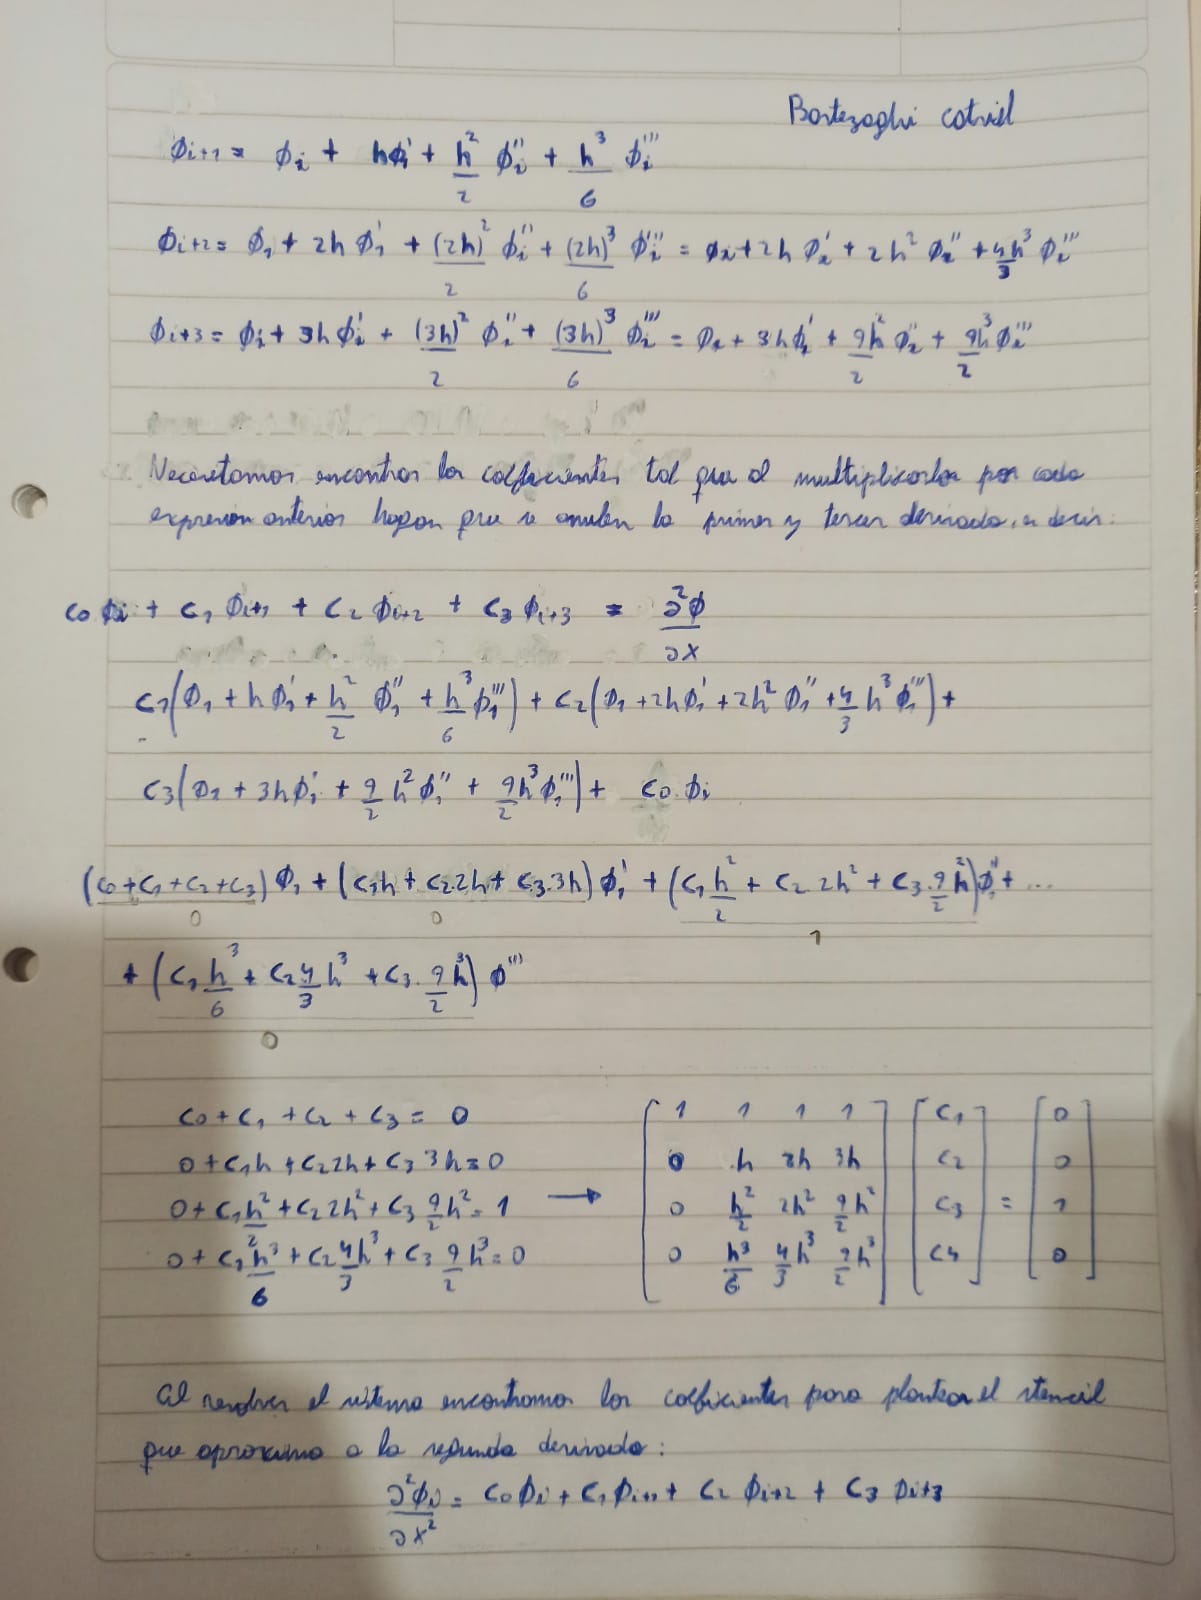 Bortezaghi Cotriel
ϕi+1 = ϕi + hϕi' + h²/2 ϕi'' + h³/6 ϕi'''
ϕi+2 = ϕ1 + 2h ϕ1' + (2h)²/2 ϕi'' + (2h)³/6 ϕi''' = ϕi + 2h ϕi' + 2h² ϕi'' + 4/3 h³ ϕi'''
ϕi+3 = ϕi + 3h ϕi' + (3h)²/2 ϕi'' + (3h)³/6 ϕi''' = ϕi + 3h ϕi' + 9h²/2 ϕi'' + 9h³/2 ϕi'''
Necesitamos encontrar los coeficientes tal que al multiplicarlos por cada
expresion anterior hagan que se anulen la primer y tercer derivada, es decir:
C0 ϕi + C1 ϕi+1 + C2 ϕi+2 + C3 ϕi+3 = ∂²ϕ/∂x
C1(ϕ1 + h ϕ1' + h²/2 ϕ1'' + h³/6 ϕ1''') + C2(ϕ1 + 2hϕ1' + 2h² ϕ1'' + 4/3 h³ ϕ1''') +
C3(ϕ1 + 3hϕ1' + 9/2 h² ϕ1'' + 9/2 h³ ϕ1''') + C0 ϕi
(C0 + C1 + C2 + C3) ϕ1 + (C1h + C2 2h + C3.3h) ϕ1' + (C1 h²/2 + C2 2h² + C3.9/2 h²) ϕ1'' + ...
0 0 1
+ (C1 h³/6 + C2 4/3 h³ + C3.9/2 h³) ϕ'''
0
C0 + C1 + C2 + C3 = 0 [1 1 1 1] [C1] [0]
0 + C1h + C2 2h + C3 3h = 0 [0 h 2h 3h] [C2] [0]
0 + C1 h²/2 + C2 2h² + C3 9/2 h² = 1 → [0 h²/2 2h² 9/2 h²] [C3] = [1]
0 + C1 h³/6 + C2 4h³/3 + C3 9/2 h³ = 0 [0 h³/6 4/3 h³ 9/2 h³] [C4] [0]
Al resolver el sistema encontramos los coeficientes para plantear el stencil
que aproxima a la segunda derivada:
∂²ϕi/∂x² = C0 ϕi + C1 ϕi+1 + C2 ϕi+2 + C3 ϕi+3